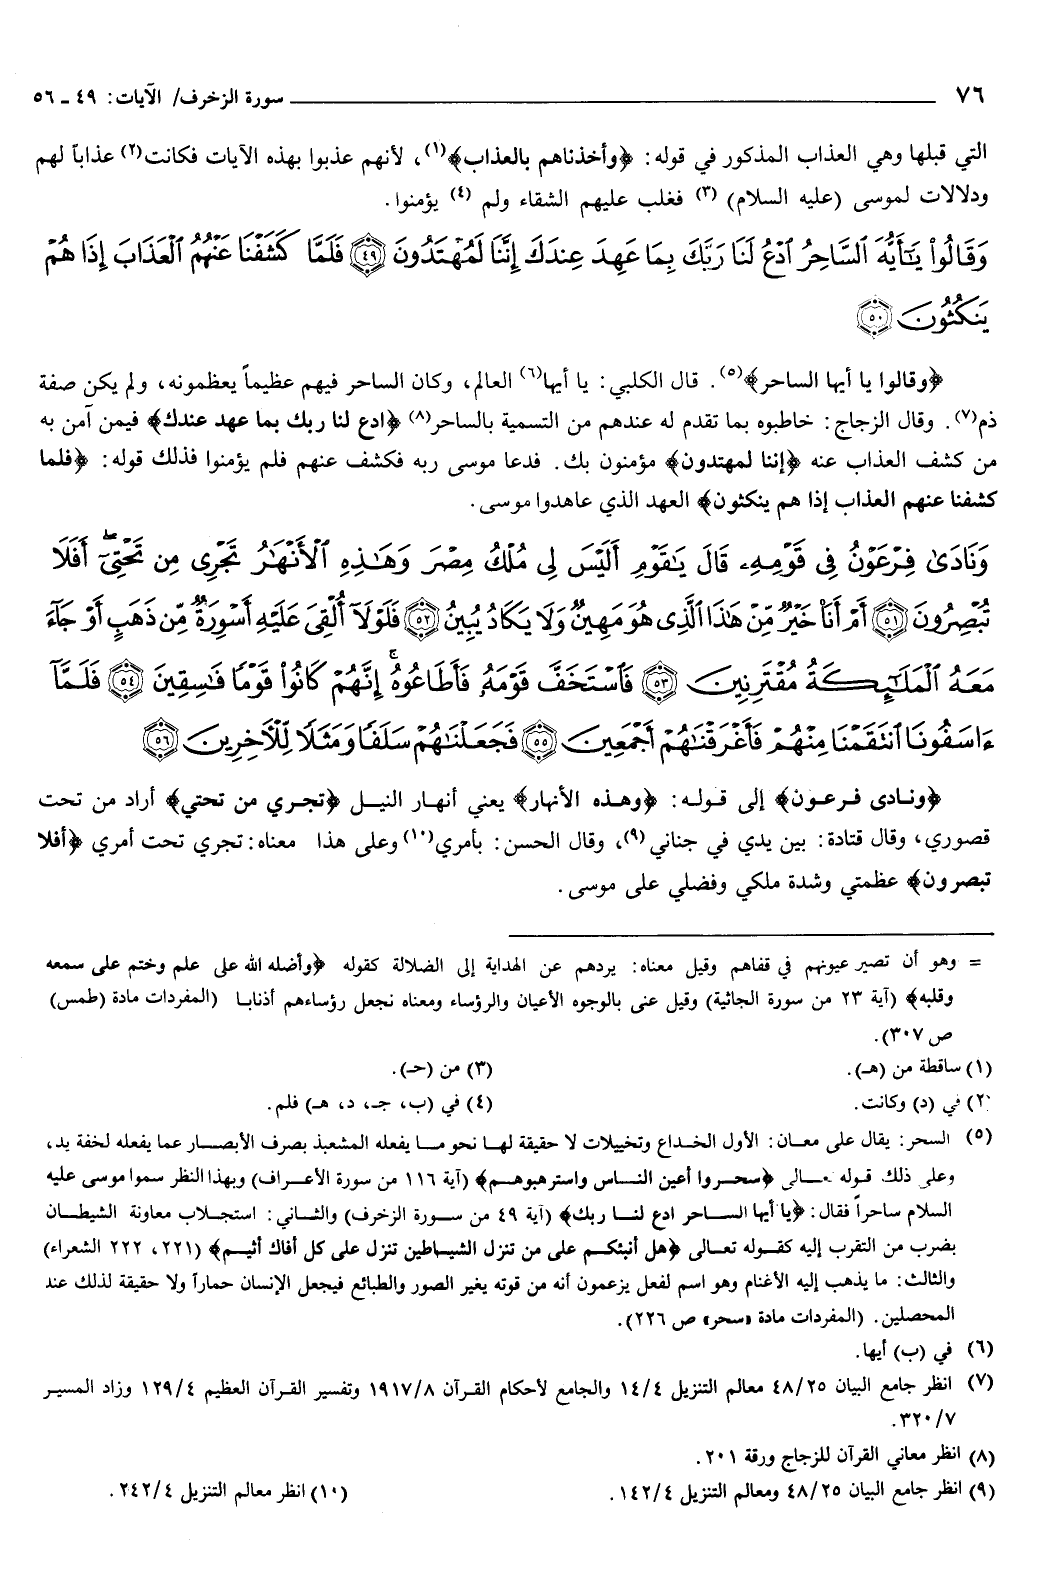 ٧٦ سورة الزخرف/ الآيات: ٤٩ ـ ٥٦
التي قبلها وهي العذاب المذكور في قوله: ﴿وأخذناهم بالعذاب﴾(١)، لأنهم عذبوا بهذه الآيات فكانت(٢) عذاباً لهم
ودلالات لموسى (عليه السلام) (٣) فغلب عليهم الشقاء ولم (٤) يؤمنوا.
وَقَالُوا۟ يَـٰٓأَيُّهَ ٱلسَّاحِرُ ٱدْعُ لَنَا رَبَّكَ بِمَا عَهِدَ عِندَكَ إِنَّنَا لَمُهْتَدُونَ ﴿٤٩﴾ فَلَمَّا كَشَفْنَا عَنْهُمُ ٱلْعَذَابَ إِذَا هُمْ
يَنكُثُونَ ﴿٥٠﴾
﴿وقالوا يا أيها الساحر﴾(٥). قال الكلبي: يا أيها(٦) العالم، وكان الساحر فيهم عظيماً يعظمونه، ولم يكن صفة
ذم(٧). وقال الزجاج: خاطبوه بما تقدم له عندهم من التسمية بالساحر(٨) ﴿ادع لنا ربك بما عهد عندك﴾ فيمن آمن به
من كشف العذاب عنه ﴿إننا لمهتدون﴾ مؤمنون بك. فدعا موسى ربه فكشف عنهم فلم يؤمنوا فذلك قوله: ﴿فلما
كشفنا عنهم العذاب إذا هم ينكثون﴾ العهد الذي عاهدوا موسى.
وَنَادَىٰ فِرْعَوْنُ فِى قَوْمِهِۦ قَالَ يَـٰقَوْمِ أَلَيْسَ لِى مُلْكُ مِصْرَ وَهَـٰذِهِ ٱلْأَنْهَـٰرُ تَجْرِى مِن تَحْتِىٓ ۖ أَفَلَا
تُبْصِرُونَ ﴿٥١﴾ أَمْ أَنَا۠ خَيْرٌ مِّنْ هَـٰذَا ٱلَّذِى هُوَ مَهِينٌ وَلَا يَكَادُ يُبِينُ ﴿٥٢﴾ فَلَوْلَآ أُلْقِىَ عَلَيْهِ أَسْوِرَةٌ مِّن ذَهَبٍ أَوْ جَآءَ
مَعَهُ ٱلْمَلَـٰٓئِكَةُ مُقْتَرِنِينَ ﴿٥٣﴾ فَٱسْتَخَفَّ قَوْمَهُۥ فَأَطَاعُوهُ ۚ إِنَّهُمْ كَانُوا۟ قَوْمًا فَـٰسِقِينَ ﴿٥٤﴾ فَلَمَّآ
ءَاسَفُونَا ٱنتَقَمْنَا مِنْهُمْ فَأَغْرَقْنَـٰهُمْ أَجْمَعِينَ ﴿٥٥﴾ فَجَعَلْنَـٰهُمْ سَلَفًا وَمَثَلًا لِّلْـَٔاخِرِينَ ﴿٥٦﴾
﴿ونادى فرعون﴾ إلى قوله: ﴿وهذه الأنهار﴾ يعني أنهار النيل ﴿تجري من تحتي﴾ أراد من تحت
قصوري، وقال قتادة: بين يدي في جناني(٩)، وقال الحسن: بأمري(١٠) وعلى هذا معناه: تجري تحت أمري ﴿أفلا
تبصرون﴾ عظمتي وشدة ملكي وفضلي على موسى.
= وهو أن تصير عيونهم في قفاهم وقيل معناه: يردهم عن الهداية إلى الضلالة كقوله ﴿وأضله الله على علم وختم على سمعه
وقلبه﴾ (آية ٢٣ من سورة الجاثية) وقيل عنى بالوجوه الأعيان والرؤساء ومعناه نجعل رؤساءهم أذنابا (المفردات مادة (طمس)
ص ٣٠٧).
(١) ساقطة من (هـ). (٣) من (حـ).
(٢) في (د) وكانت. (٤) في (ب، جـ، د، هـ) فلم.
(٥) السحر: يقال على معان: الأول الخداع وتخييلات لا حقيقة لها نحو ما يفعله المشعبذ بصرف الأبصار عما يفعله لخفة يد،
وعلى ذلك قوله تعالى ﴿سحروا أعين الناس واسترهبوهم﴾ (آية ١١٦ من سورة الأعراف) وبهذا النظر سموا موسى عليه
السلام ساحراً فقال: ﴿يا أيها الساحر ادع لنا ربك﴾ (آية ٤٩ من سورة الزخرف) والثاني: استجلاب معاونة الشيطان
بضرب من التقرب إليه كقوله تعالى ﴿هل أنبئكم على من تنزل الشياطين تنزل على كل أفاك أثيم﴾ (٢٢١، ٢٢٢ الشعراء)
والثالث: ما يذهب إليه الأغنام وهو اسم لفعل يزعمون أنه من قوته يغير الصور والطبائع فيجعل الإنسان حماراً ولا حقيقة لذلك عند
المحصلين. (المفردات مادة «سحر» ص ٢٢٦).
(٦) في (ب) أيها.
(٧) انظر جامع البيان ٤٨/٢٥ معالم التنزيل ١٤/٤ والجامع لأحكام القرآن ١٩١٧/٨ وتفسير القرآن العظيم ١٢٩/٤ وزاد المسير
٣٢٠/٧.
(٨) انظر معاني القرآن للزجاج ورقة ٢٠١.
(٩) انظر جامع البيان ٤٨/٢٥ ومعالم التنزيل ١٤٢/٤. (١٠) انظر معالم التنزيل ٢٤٢/٤.